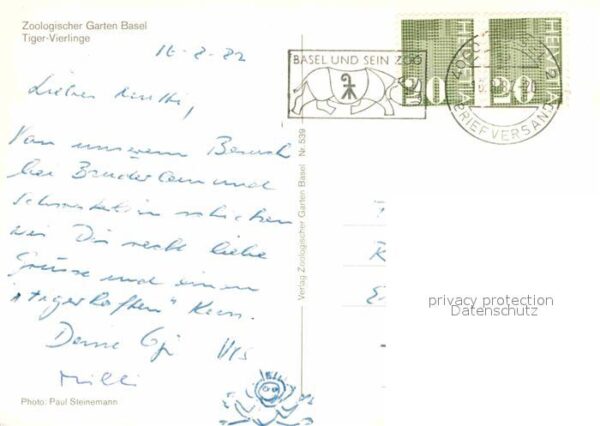 Zoologischer Garten Basel
Tiger-Vierlinge
16-2-82
BASEL UND SEIN ZOO
HELVETIA
20
HELVETIA
20
BRIEFVERSAND
Von unserem Besuch
bei Bruderlein und
schicken
wir Dir recht liebe
Grüsse und einen
"tigerhaften"
Deine
Photo: Paul Steinemann
Verlag Zoologischer Garten Basel Nr. 539
privacy protection
Datenschutz